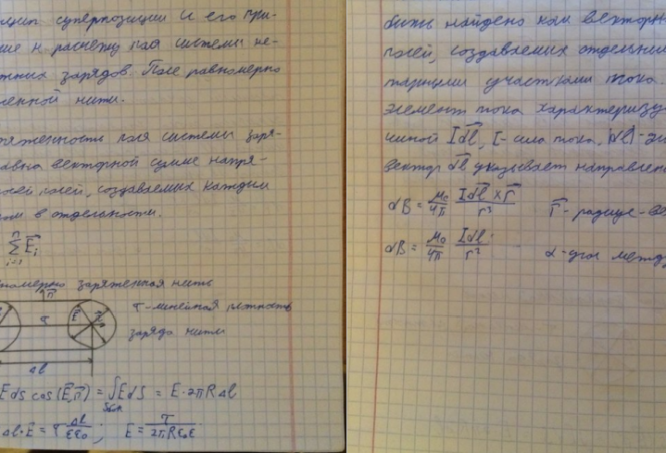 цип суперпозиции и его при-
ние к расчету поля системы не-
жных зарядов. Поле равномерно
женной нити.
женность поля системы заря-
авна векторной сумме напря-
стей полей, создаваемых каждым
ом в отдельности.
\sum_{i=1}^{n} \vec{E}_i
номерно заряженная нить
\vec{n}
τ-линейная плотность
τ
заряда нити
Δl
E ds cos(\vec{E},\vec{n}) = \int_{Sбок} E ds = E·2πRΔl
Δl·E = τ \frac{Δl}{εε_0}; E = \frac{τ}{2πRε_0ε}
быть найдено как векторн
полей, создаваемых отдельным
тарными участками тока.
Элемент тока характеризу
чиной I\vec{dl}, I-сила тока, |dl|-эл
вектор \vec{dl} указывает направлен
dB = \frac{μ_0}{4π} \frac{I\vec{dl}×\vec{r}}{r^3} \vec{r}-радиус-ве
dB = \frac{μ_0}{4π} \frac{Idl}{r^2} α-угол между